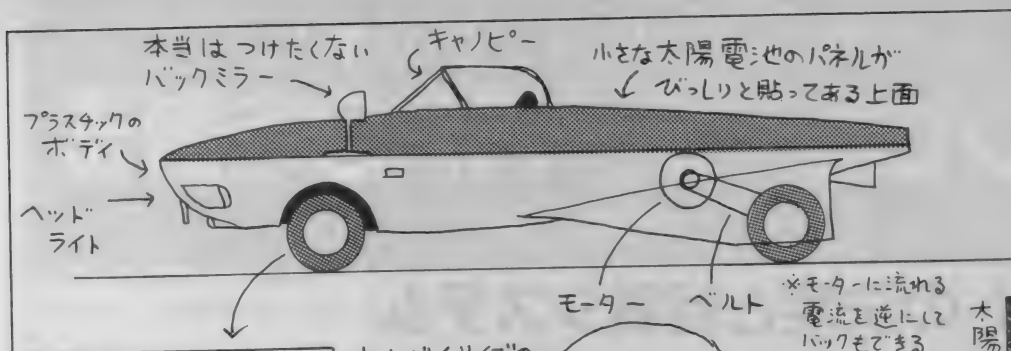 本当は つけたくない
バックミラー
キャノピー
小さな太陽電池のパネルが
びっしりと貼ってある上面
プラスチックの
ボディ
ヘッド
ライト
モーター
ベルト
※モーターに流れる
電流を逆にして
バックもできる
太陽